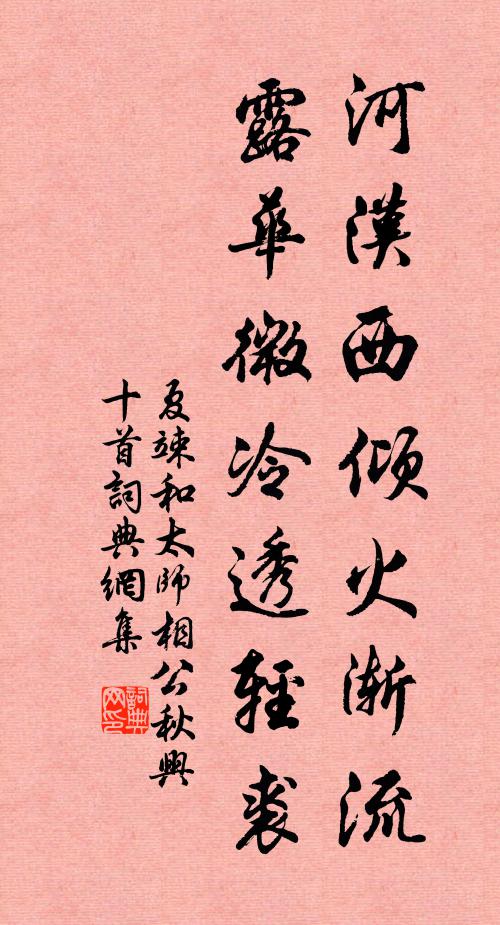 河漢西傾火漸流
露華微冷透輕裘
夏竦和太師相公秋興
十首詞典網集
詞典
网印